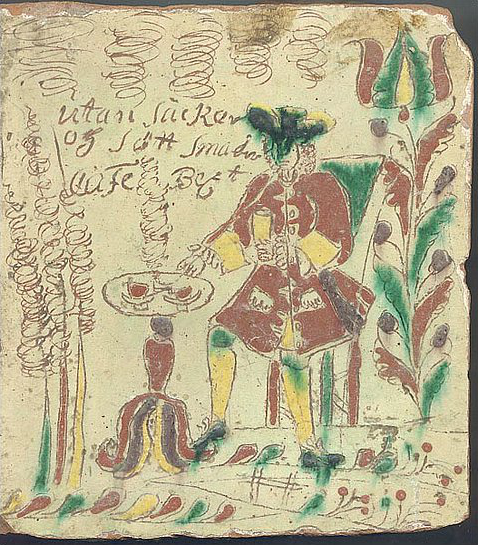 utan säcker
og Sött Smaker
CaFFe Best